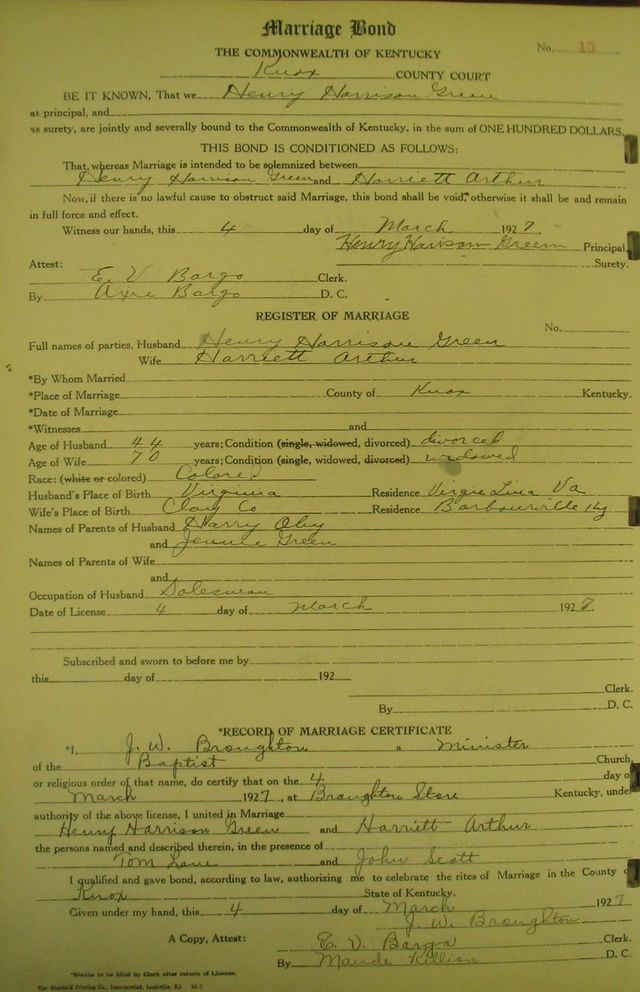 Marriage Bond
No. 45
THE COMMONWEALTH OF KENTUCKY
Knox COUNTY COURT
BE IT KNOWN, That we Henry Harrison Green
as principal, and
as surety, are jointly and severally bound to the Commonwealth of Kentucky, in the sum of ONE HUNDRED DOLLARS,
THIS BOND IS CONDITIONED AS FOLLOWS:
That, whereas Marriage is intended to be solemnized between
Henry Harrison Green and Harriett Arthur
Now, if there is no lawful cause to obstruct said Marriage, this bond shall be void, otherwise it shall be and remain
in full force and effect.
Witness our hands, this 4 day of March 1927.
Henry Harrison Green Principal,
Attest: Surety.
E. V Bargo Clerk.
By Axie Bargo D. C.
REGISTER OF MARRIAGE
No.
Full names of parties, Husband Henry Harrison Green
Wife Harriett Arthur
*By Whom Married
*Place of Marriage County of Knox Kentucky.
*Date of Marriage
*Witnesses and
Age of Husband 44 years; Condition (single, widowed, divorced) divorced
Age of Wife 70 years; Condition (single, widowed, divorced) widowed
Race: (white or colored) Colored
Husband's Place of Birth Virginia Residence Virgie Lina Va
Wife's Place of Birth Clay Co Residence Barbourville Ky
Names of Parents of Husband Harry Oby
and Jennie Green
Names of Parents of Wife
and
Occupation of Husband Salesman
Date of License 4 day of March 1927.
Subscribed and sworn to before me by
this day of 192
Clerk.
By D. C.
*RECORD OF MARRIAGE CERTIFICATE
*I, J. W. Broughton a Minister
of the Baptist Church,
or religious order of that name, do certify that on the 4 day o
March 1927, at Broughton Store Kentucky, unde
authority of the above license, I united in Marriage
Henry Harrison Green and Harriett Arthur
the persons named and described therein, in the presence of
Tom Lane and John Scott
I qualified and gave bond, according to law, authorizing me to celebrate the rites of Marriage in the County o
Knox State of Kentucky.
Given under my hand, this 4 day of March 1927
J. W. Broughton
A Copy, Attest: E. V. Bargo Clerk.
By Maude Killion D. C.
*Blanks to be filled by Clerk after return of License.
The Standard Printing Co., Incorporated, Louisville, Ky. M-7